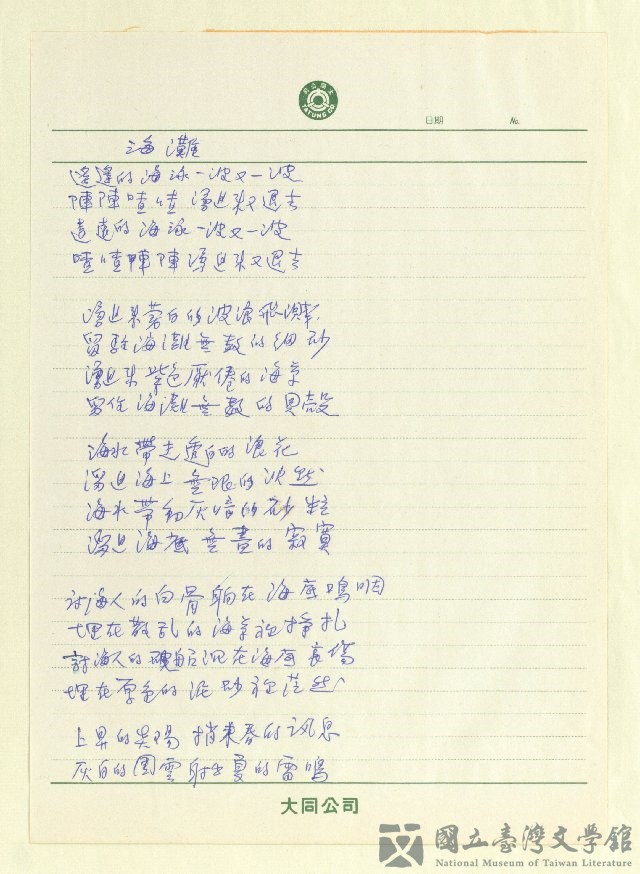 TATUNG CO
日期 No.
海灘
遙遠的海涼一波又一波
陣陣喳喳 湧進來又退去
遠遠的海涼一波又一波
喳喳陣陣 湧進來又退去
湧進來蒼白的波浪飛
留駐海灘無數的細砂
湧進來紫色厭倦的海草
留住海灘無數的貝殼
海水帶走蒼白的浪花
海上無限的淡然
海水帶動灰暗的砂粒
海底無盡的寂寞
討海人的白骨躺在海底鳴咽
埋在散乱的海草裡掙扎
討海人的船沉在海底哀傷
埋在厚色的泥砂裡茫然
上昇的炎陽 捎來春的訊息
灰白的圍雲射出夏的雷鳴
大同公司
國立臺灣文學館
National Museum of Taiwan Literature